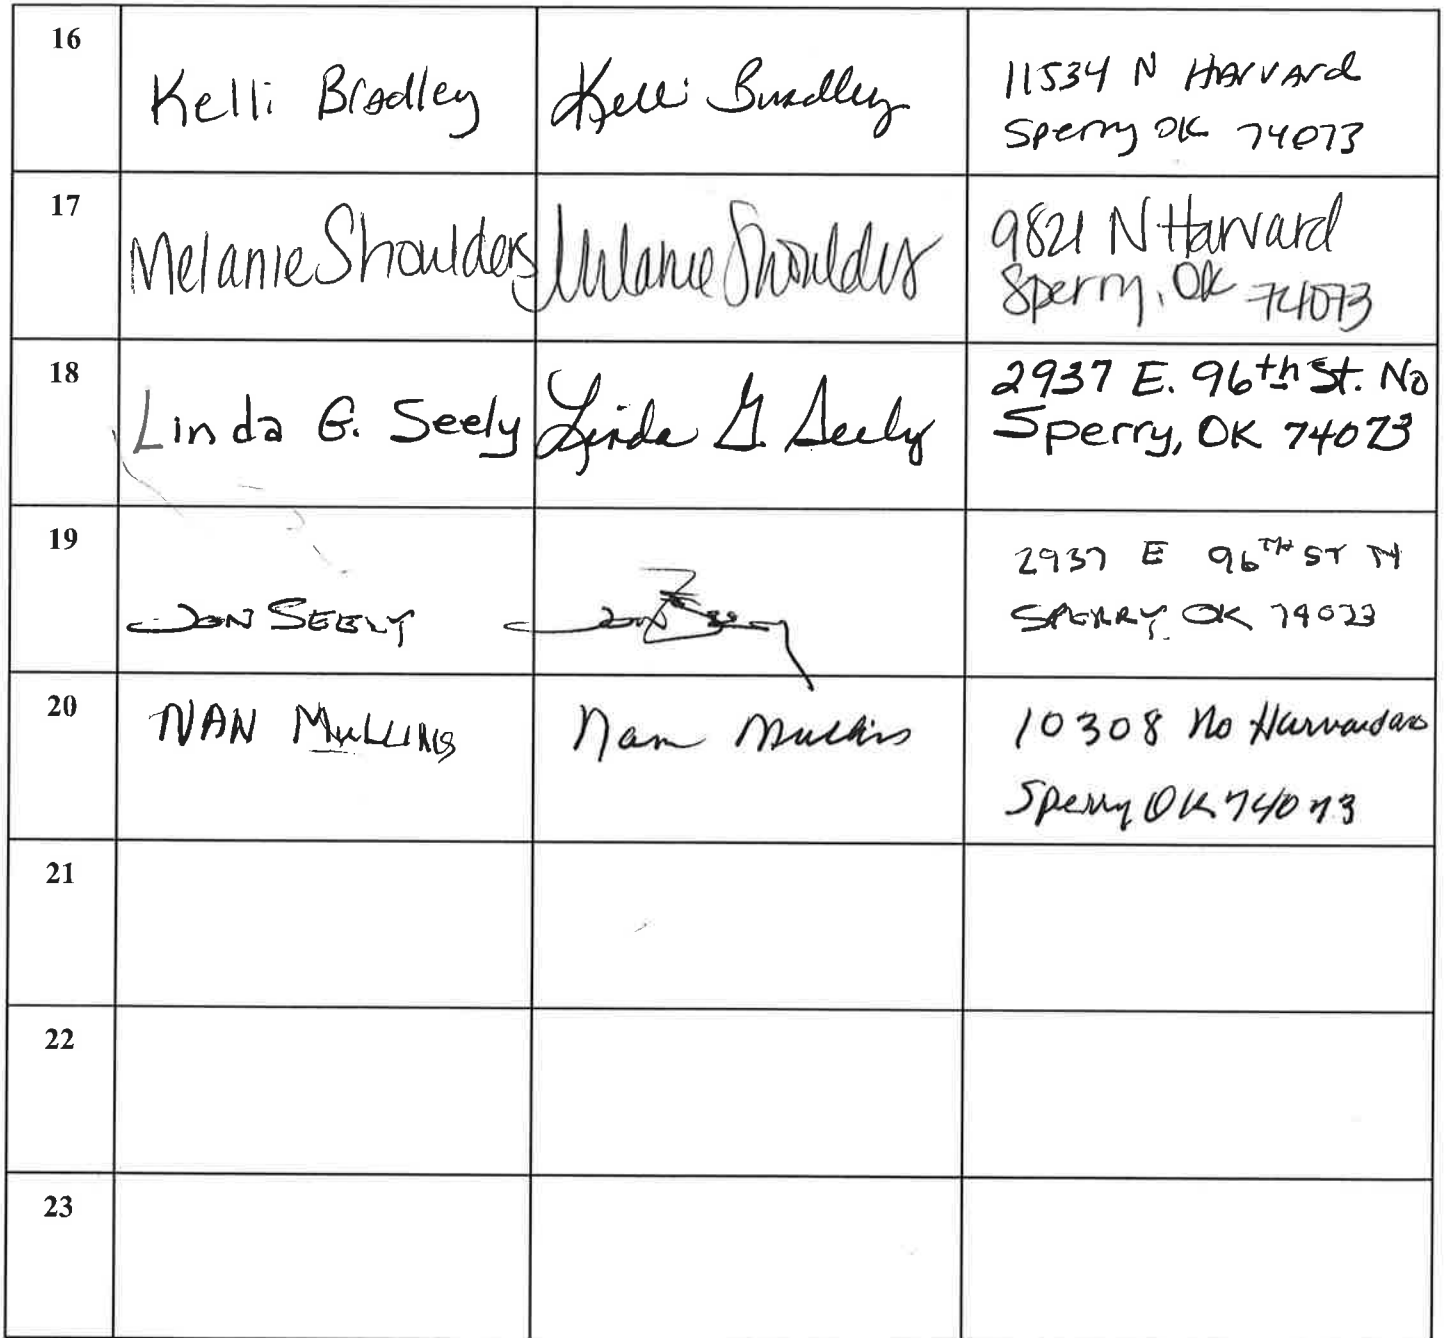 16
Kelli Bradley Kelli Bradley 11534 N Harvard
Sperry OK 74073
17
Melanie Shoulders Melanie Shoulders 9821 N Harvard
Sperry, OK 74073
18
Linda G. Seely Linda G. Seely 2937 E. 96th St. No
Sperry, OK 74073
19
JON SEELY 2937 E 96TH ST N
SPERRY, OK 74073
20
NAN MULLINS Nan Mullins 10308 No Harvard Ave
Sperry OK 74073
21
22
23